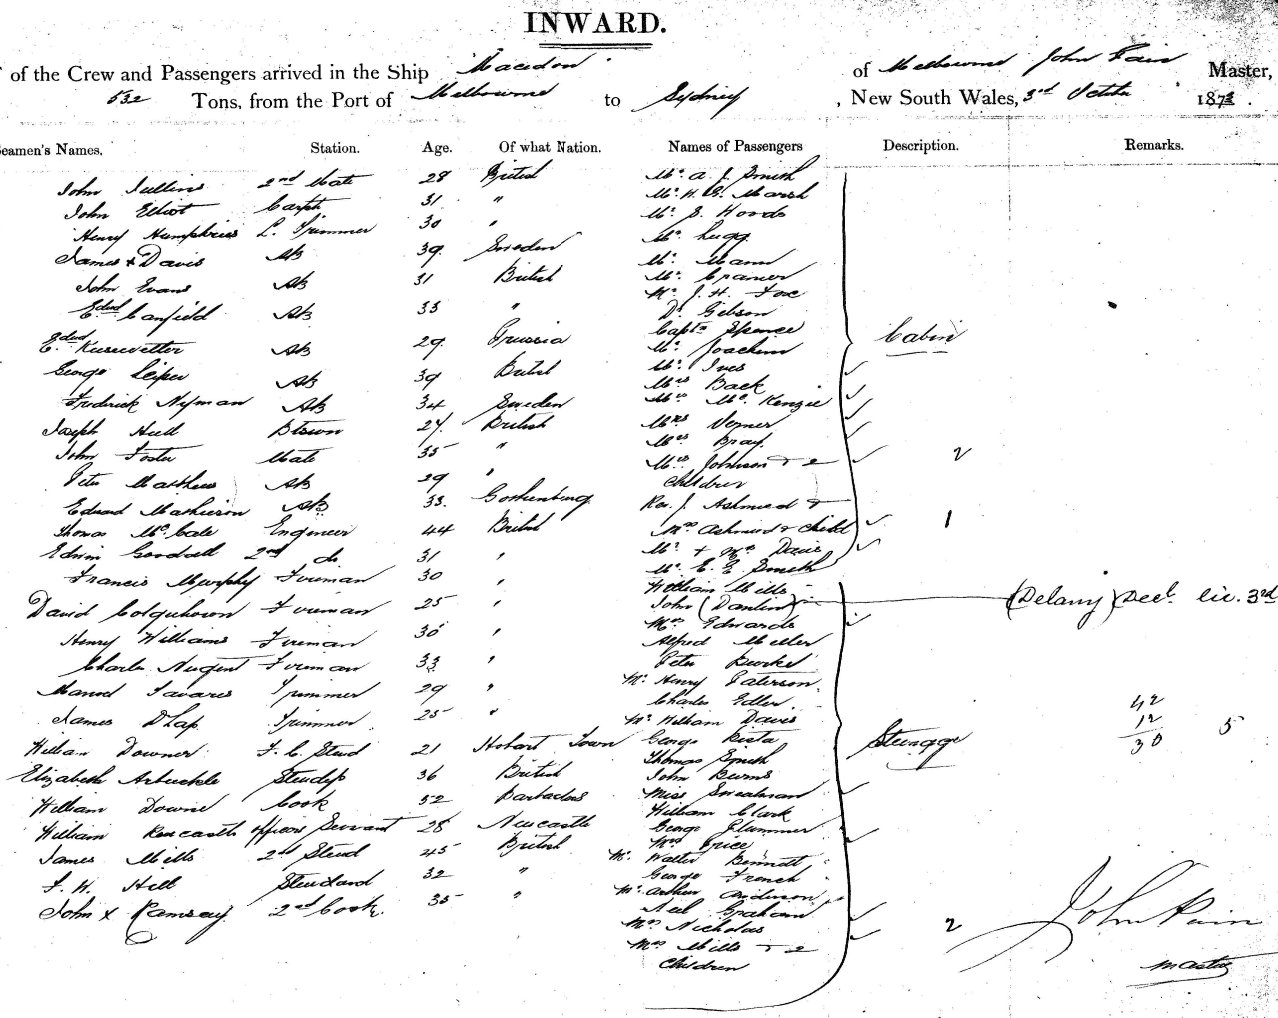 INWARD.
of the Crew and Passengers arrived in the Ship Macedon of Melbourne John Pain Master,
532 Tons, from the Port of Melbourne to Sydney, New South Wales, 3rd October 1873.
Seamen's Names. Station. Age. Of what Nation. Names of Passengers Description. Remarks.
John Sullins 2nd Mate 28 British Mr. A. J. Smith
John Elliot Carptr 31 " Mr. H. B. Marsh
Henry Humphries L. Trimmer 30 " Mr. S. Woods
James x Davis AB 39 Sweden Mr. Lugg
John Evans AB 31 British Mr. Mann
Mr. Cramer
Edwd Canfield AB 33 " Mr. J. H. Fox
Dr. Gibson
Captn Spence Cabin
Edwd AB 29 Prussia Mr. Joachim
George Leiper AB 39 British Mr. Ives
Mrs Back
Frederick Nyman AB 34 Sweden Mrs Mc. Kenzie
Joseph Hull Btswn 27 British Mrs Verner
John Foster Mate 35 " Mrs Bray
Peter Matthews AB 29 " Mrs Johnson & 2 2
Children
Edward Mathieson AB 33 Gothenburg Rev. J. Ashmead &
Thomas McCale Engineer 44 British Mrs Ashmead & Child 1
Edwin Goodall 2nd do 31 " Mr. & Mrs Davis
Francis Murphy Fireman 30 " Mr. E. E. Smith
William Mills
David Colquhoun Fireman 25 " John (Danlin) (Delany) Decl. lic. 3rd
Mrs Edwards
Henry Williams Fireman 30 " Alfred Miller
Charles Nugent Fireman 33 " Peter Burke
Mr. Henry Paterson
Manod Tavares Trimmer 29 " Charles Edler
James Dlap Trimmer 25 " Mr. William Davis
42
12
30 5
William Downer F. C. Stewd 21 Hobart Town George Rista Steerage
Thomas Smith
Elizabeth Arbuckle Stewdess 36 British John Burns
William Downie Cook 52 Barbadoes Miss Smealman
William Clark
William Rencastle Officers Servant 28 Newcastle George Glummer
James Mills 2nd Stewd 45 British Mrs Price
Mr. Walter Bennett
F. W. Hill Steward 32 " George French
Mr. Arthur Anderson
John x Ramsay 2nd Cook 35 " Neil Graham
Mrs Nicholas
Mrs Mills & 2 2
Children
John Pain
Master